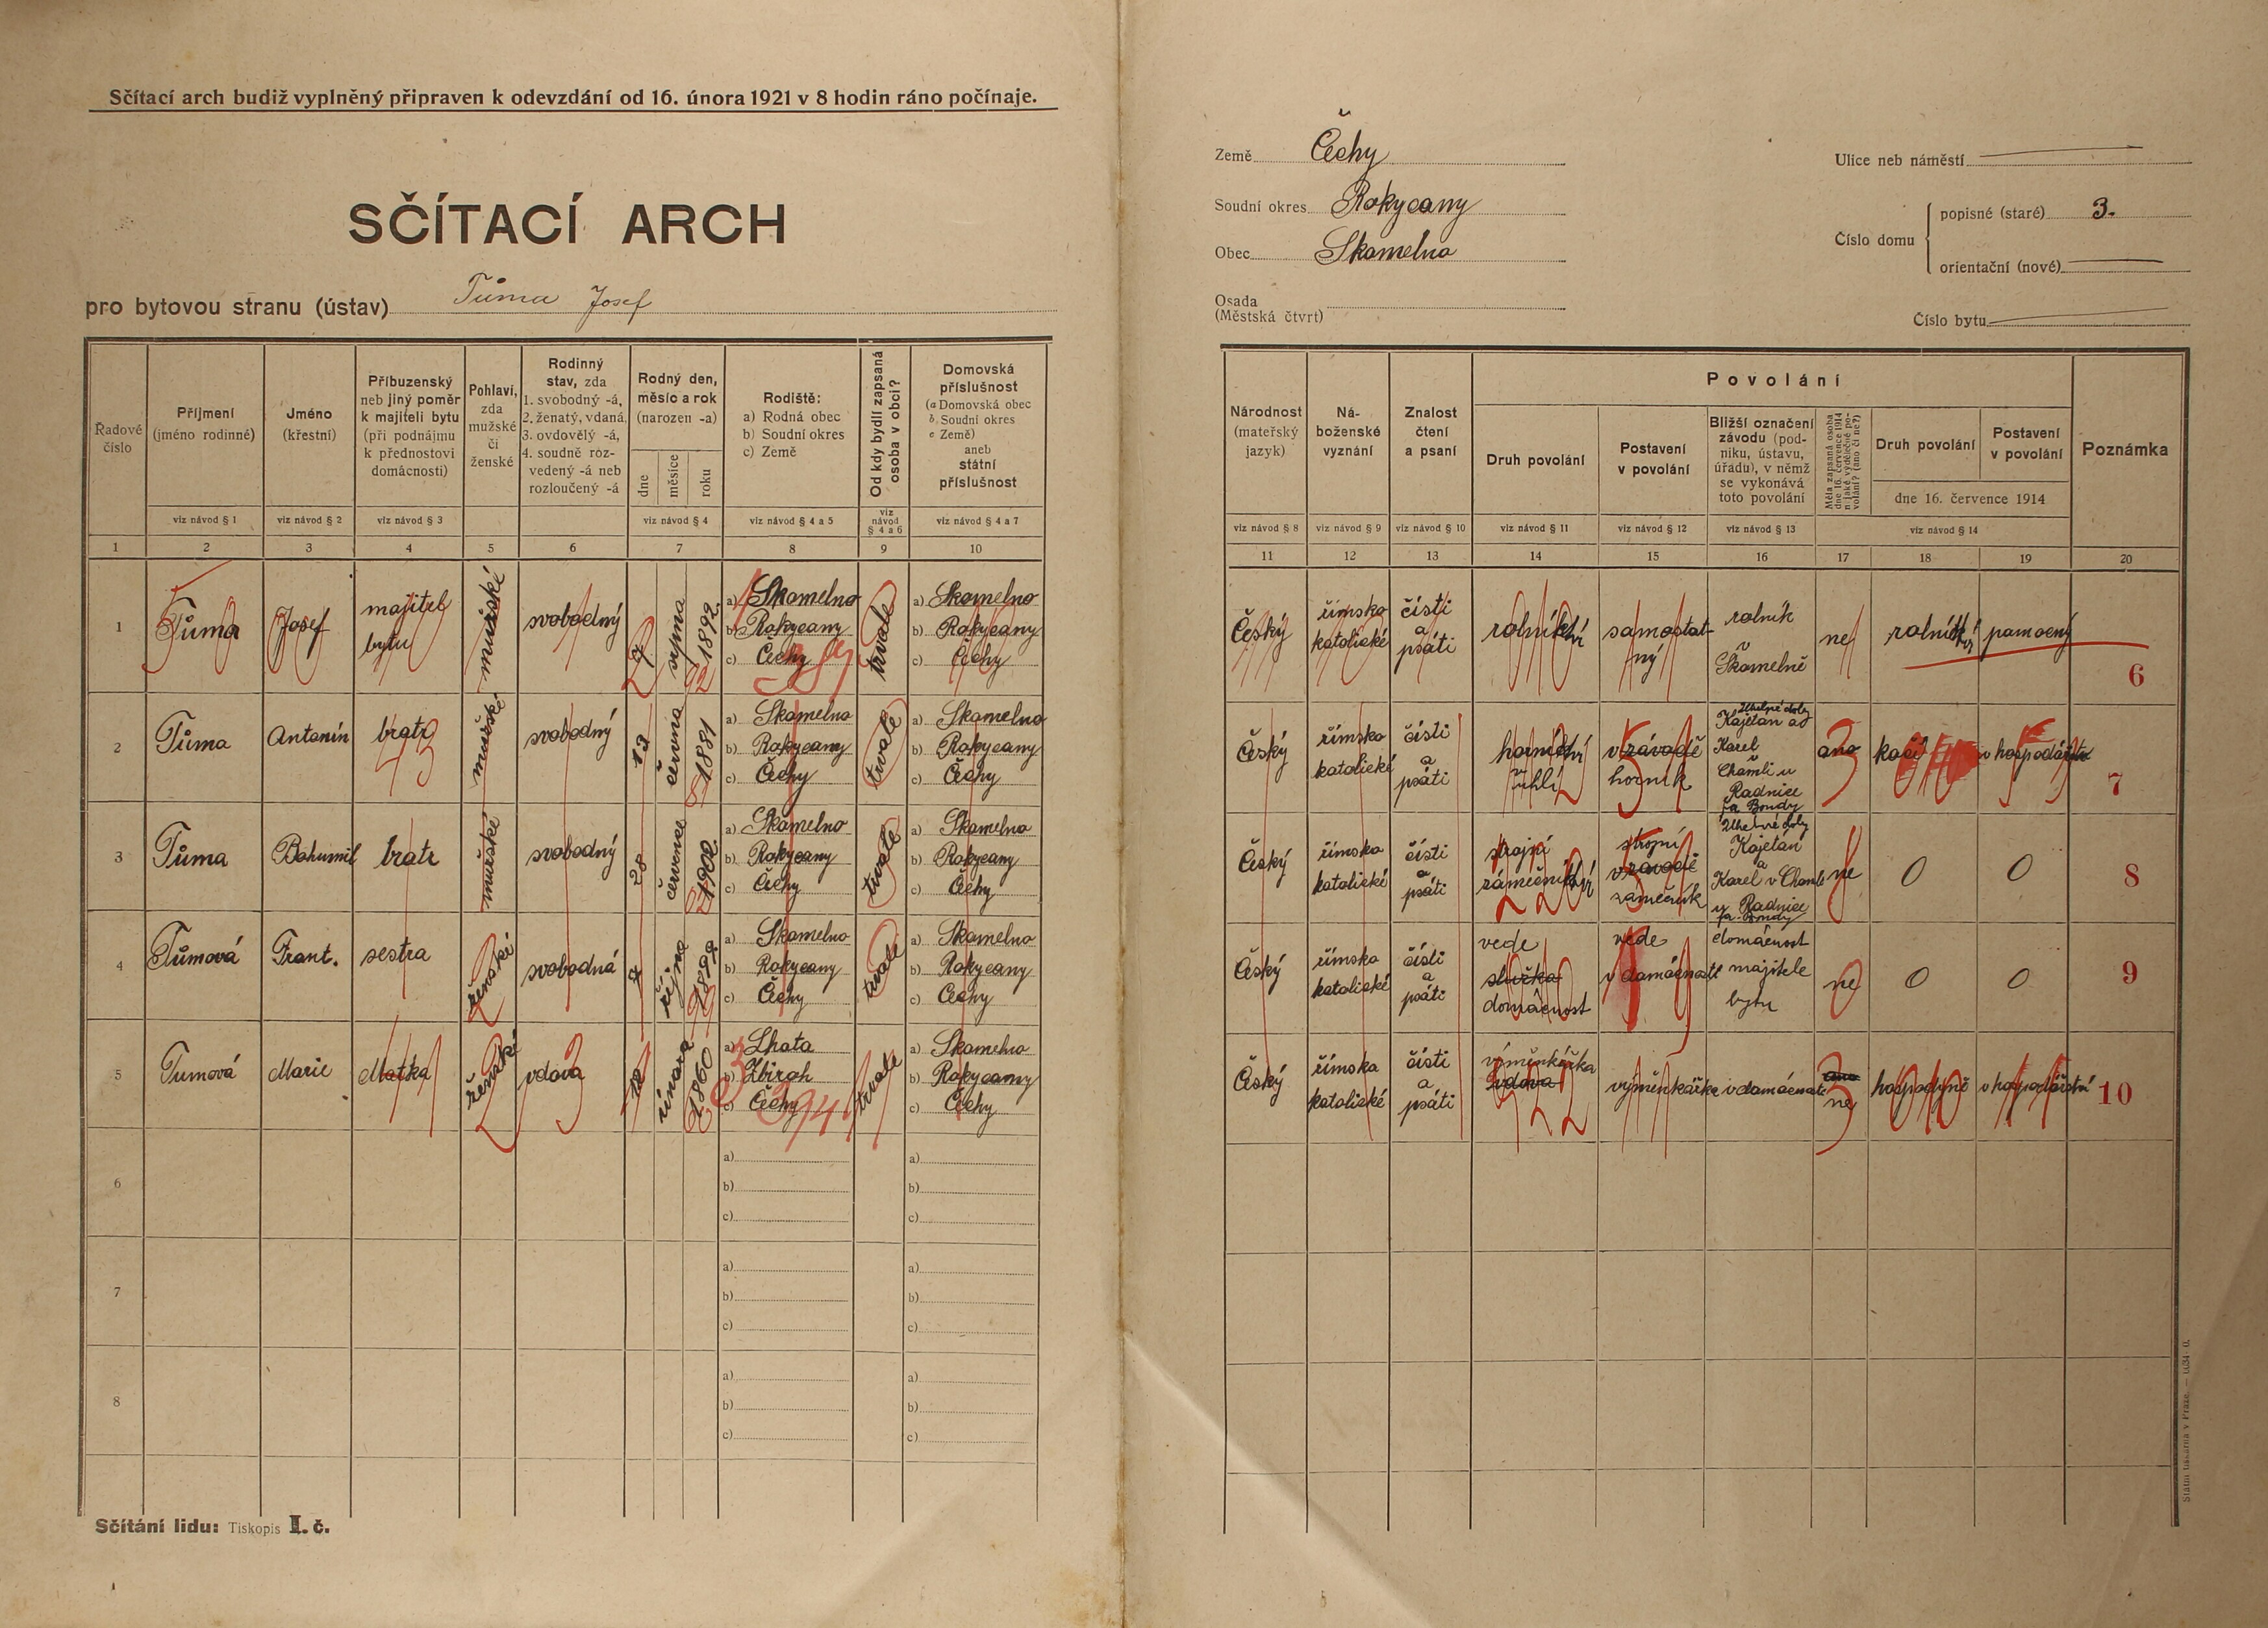 Sčítací arch budiž vyplněný připraven k odevzdání od 16. února 1921 v 8 hodin ráno počínaje.
SČÍTACÍ ARCH
pro bytovou stranu (ústav) Tůma Josef
Řadové číslo
Příjmení (jméno rodinné)
Jméno (křestní)
Příbuzenský neb jiný poměr k majiteli bytu (při podnájmu k přednostovi domácnosti)
Pohlaví, zda mužské či ženské
Rodinný stav, zda 1. svobodný -á, 2. ženatý, vdaná, 3. ovdovělý -á, 4. soudně rozvedený -á neb rozloučený -á
Rodný den, měsíc a rok (narozen -a)
dne měsíce roku
Rodiště: a) Rodná obec b) Soudní okres c) Země
Od kdy bydlí zapsaná osoba v obci?
Domovská příslušnost (a Domovská obec b. Soudní okres c Země) aneb státní příslušnost
viz návod § 1 viz návod § 2 viz návod § 3 viz návod § 4 viz návod § 4 a 5 viz návod § 4 a 6 viz návod § 4 a 7
1 2 3 4 5 6 7 8 9 10
1 Tůma Josef majitel bytu mužské svobodný 7 srpna 1892 a) Skomelno b) Rokycany c) Čechy trvale a) Skomelno b) Rokycany c) Čechy
2 Tůma Antonín bratr mužské svobodný 13 června 1881 a) Skomelno b) Rokycany c) Čechy trvale a) Skomelno b) Rokycany c) Čechy
3 Tůma Bohumil bratr mužské svobodný 28 července 1902 a) Skomelno b) Rokycany c) Čechy trvale a) Skomelno b) Rokycany c) Čechy
4 Tůmová Frant. sestra ženské svobodná 7 října 1899 a) Skomelno b) Rokycany c) Čechy trvale a) Skomelno b) Rokycany c) Čechy
5 Tumová Marie Matka ženské vdova 12 února 1860 a) Lhota b) Zbiroh c) Čechy trvale a) Skomelno b) Rokycany c) Čechy
6 a) b) c) a) b) c)
7 a) b) c) a) b) c)
8 a) b) c) a) b) c)
Sčítání lidu: Tiskopis I. č.
Země Čechy
Soudní okres Rokycany
Obec Skomelno
Osada (Městská čtvrt)
Ulice neb náměstí
Číslo domu
popisné (staré) 3.
orientační (nové)
Číslo bytu
Národnost (mateřský jazyk)
Náboženské vyznání
Znalost čtení a psaní
Povolání
Druh povolání
Postavení v povolání
Bližší označení závodu (podniku, ústavu, úřadu), v němž se vykonává toto povolání
Měla zapsaná osoba dne 16. července 1914 nějaké výdělečné povolání? (ano či ne?)
Druh povolání
Postavení v povolání
dne 16. července 1914
Poznámka
viz návod § 8 viz návod § 9 viz návod § 10 viz návod § 11 viz návod § 12 viz návod § 13 viz návod § 14
11 12 13 14 15 16 17 18 19 20
Český římsko katolické čísti a psáti rolnictví samostatný rolník v Skomelně ne rolnictví pomocný 6
Český římsko katolické čísti a psáti hornictví uhlí v závodě horník Uhelné doly Kajetan a Karel v Chomli u Radnice fa Bondy ano kočí v hospodářství 7
Český římsko katolické čísti a psáti strojní zámečnictví strojní v závodě zámečník Uhelné doly Kajetán a Karel v Chomli u Radnice fa. Bondy ne 0 0 8
Český římsko katolické čísti a psáti vede služka domácnost vede v domácnosti domácnost majitele bytu ne 0 0 9
Český římsko katolické čísti a psáti výměnkářka vdova výměnkářka v domácnosti ano ne hospodyně v hospodářství 10
Státní tiskárna v Praze.